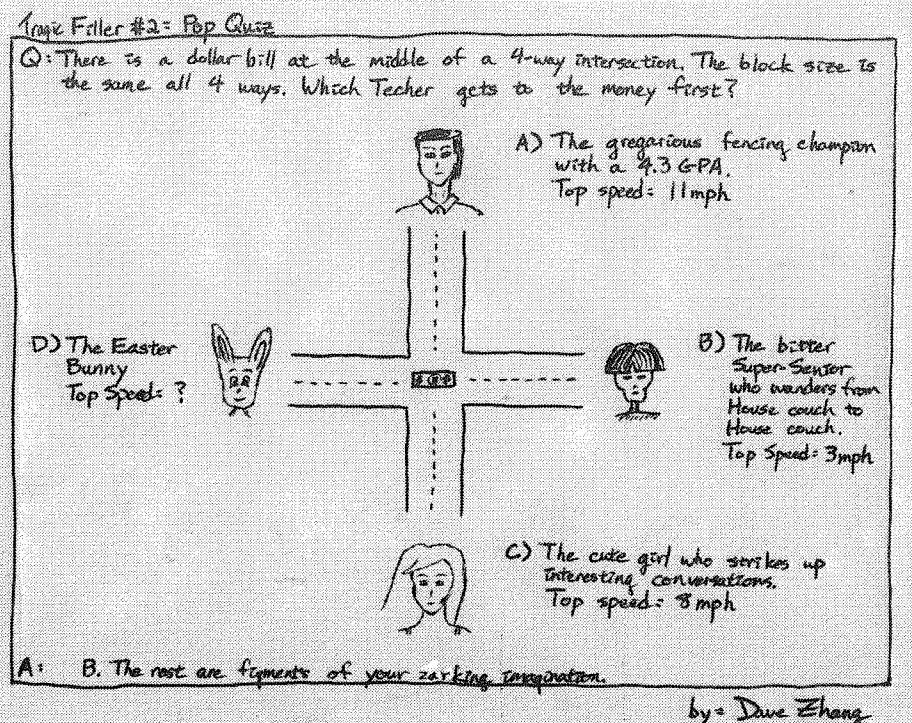 Tragic Filler #2: Pop Quiz
Q: There is a dollar bill at the middle of a 4-way intersection. The block size is
the same all 4 ways. Which Techer gets to the money first?
A) The gregarious fencing champion
with a 4.3 GPA.
Top speed= 11mph
D) The Easter
Bunny
Top Speed= ?
B) The bitter
Super-Senior
who wanders from
House couch to
House couch.
Top Speed= 3mph
C) The cute girl who strikes up
interesting conversations.
Top speed= 8mph
A: B. The rest are figments of your zarking imagination.
by= Dave Zhang